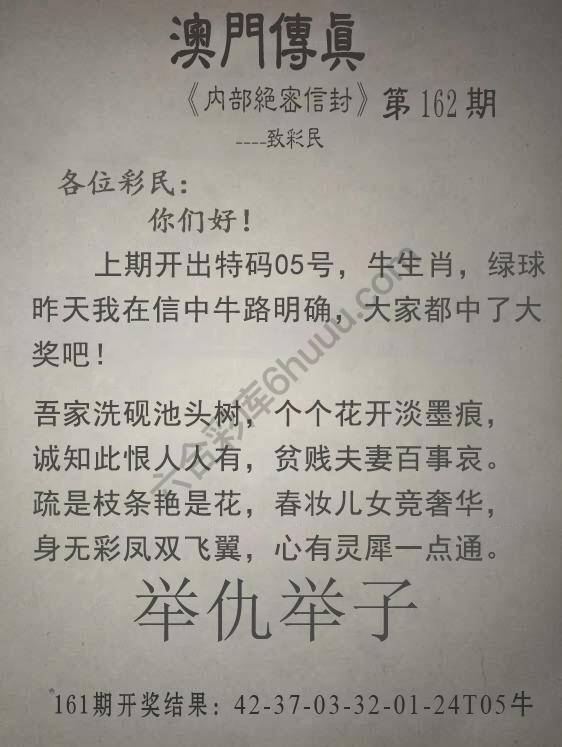 澳門傳眞
《内部絕密信封》第162期
----致彩民
各位彩民：
你们好！
上期开出特码05号，牛生肖，绿球
昨天我在信中牛路明确，大家都中了大
奖吧！
吾家洗砚池头树，个个花开淡墨痕，
诚知此恨人人有，贫贱夫妻百事哀。
疏是枝条艳是花，春妆儿女竞奢华，
身无彩凤双飞翼，心有灵犀一点通。
举仇举子
161期开奖结果：42-37-03-32-01-24T05牛
六合彩库6huuu.com